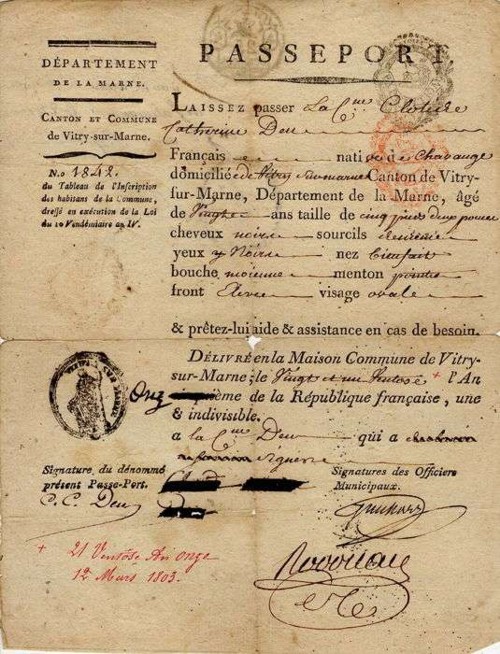 PASSEPORT
DÉPARTEMENT
DE LA MARNE.
CANTON ET COMMUNE
de Vitry-sur-Marne.
N.o 1842.
du Tableau de l'Inscription
des habitans de la Commune,
dressé en exécution de la Loi
du 10 Vendémiaire an IV.
LAISSEZ passer La Cne Clotilde
Catherine Deu
Français e native de Chavange
domiciliée de Vitry Surmarne Canton de Vitry-
sur-Marne, Département de la Marne, âgé
de Vingt ans taille de cinq pieds deux pouces
cheveux noirs sourcils
yeux Noirs nez bienfait
bouche moienne menton pointu
front Elevé visage ovale
& prêtez-lui aide & assistance en cas de besoin.
DÉLIVRÉ en la Maison Commune de Vitry-
sur-Marne; le Vingt et un Ventose + l'An
Onzième de la République française, une
& indivisible.
a la Cne Deu qui a
signé
Signature du dénommé
présent Passe-Port.
C. C. Deu
Signatures des Officiers
Municipaux.
+ 21 Ventôse An onze
12 Mars 1803.